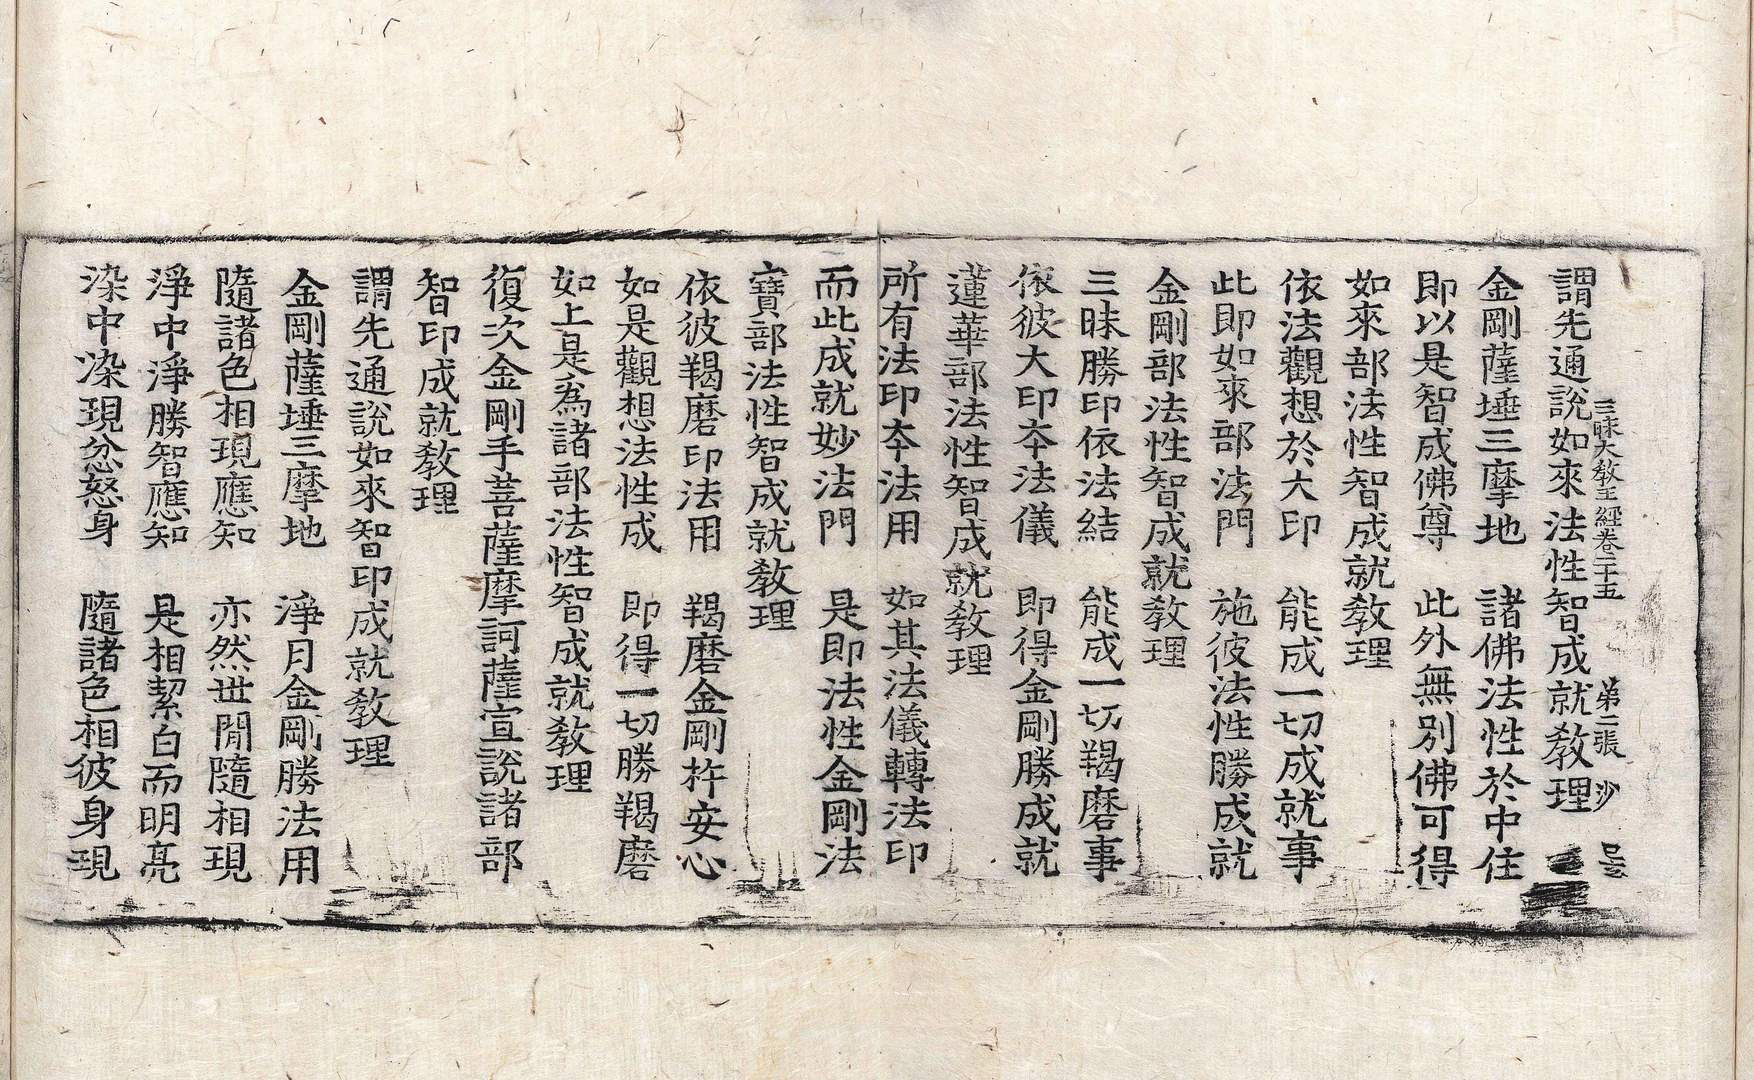 三昧大敎王經卷二十五 第二張 沙
謂先通說如來法性智成就敎理
金剛薩埵三摩地 諸佛法性於中住
即以是智成佛尊 此外無別佛可得
如來部法性智成就敎理
依法觀想於大印 能成一切成就事
此即如來部法門 施彼法性勝成就
金剛部法性智成就敎理
三昧勝印依法結 能成一切羯磨事
依彼大印夲法儀 即得金剛勝成就
蓮華部法性智成就敎理
所有法印夲法用 如其法儀轉法印
而此成就妙法門 是即法性金剛法
寶部法性智成就敎理
依彼羯磨印法用 羯磨金剛杵安心
如是觀想法性成 即得一切勝羯磨
如上是爲諸部法性智成就敎理
復次金剛手菩薩摩訶薩宣說諸部
智印成就敎理
謂先通說如來智印成就敎理
金剛薩埵三摩地 淨月金剛勝法用
隨諸色相現應知 亦然世閒隨相現
淨中淨勝智應知 是相絜白而明亮
染中染現忿怒身 隨諸色相彼身現